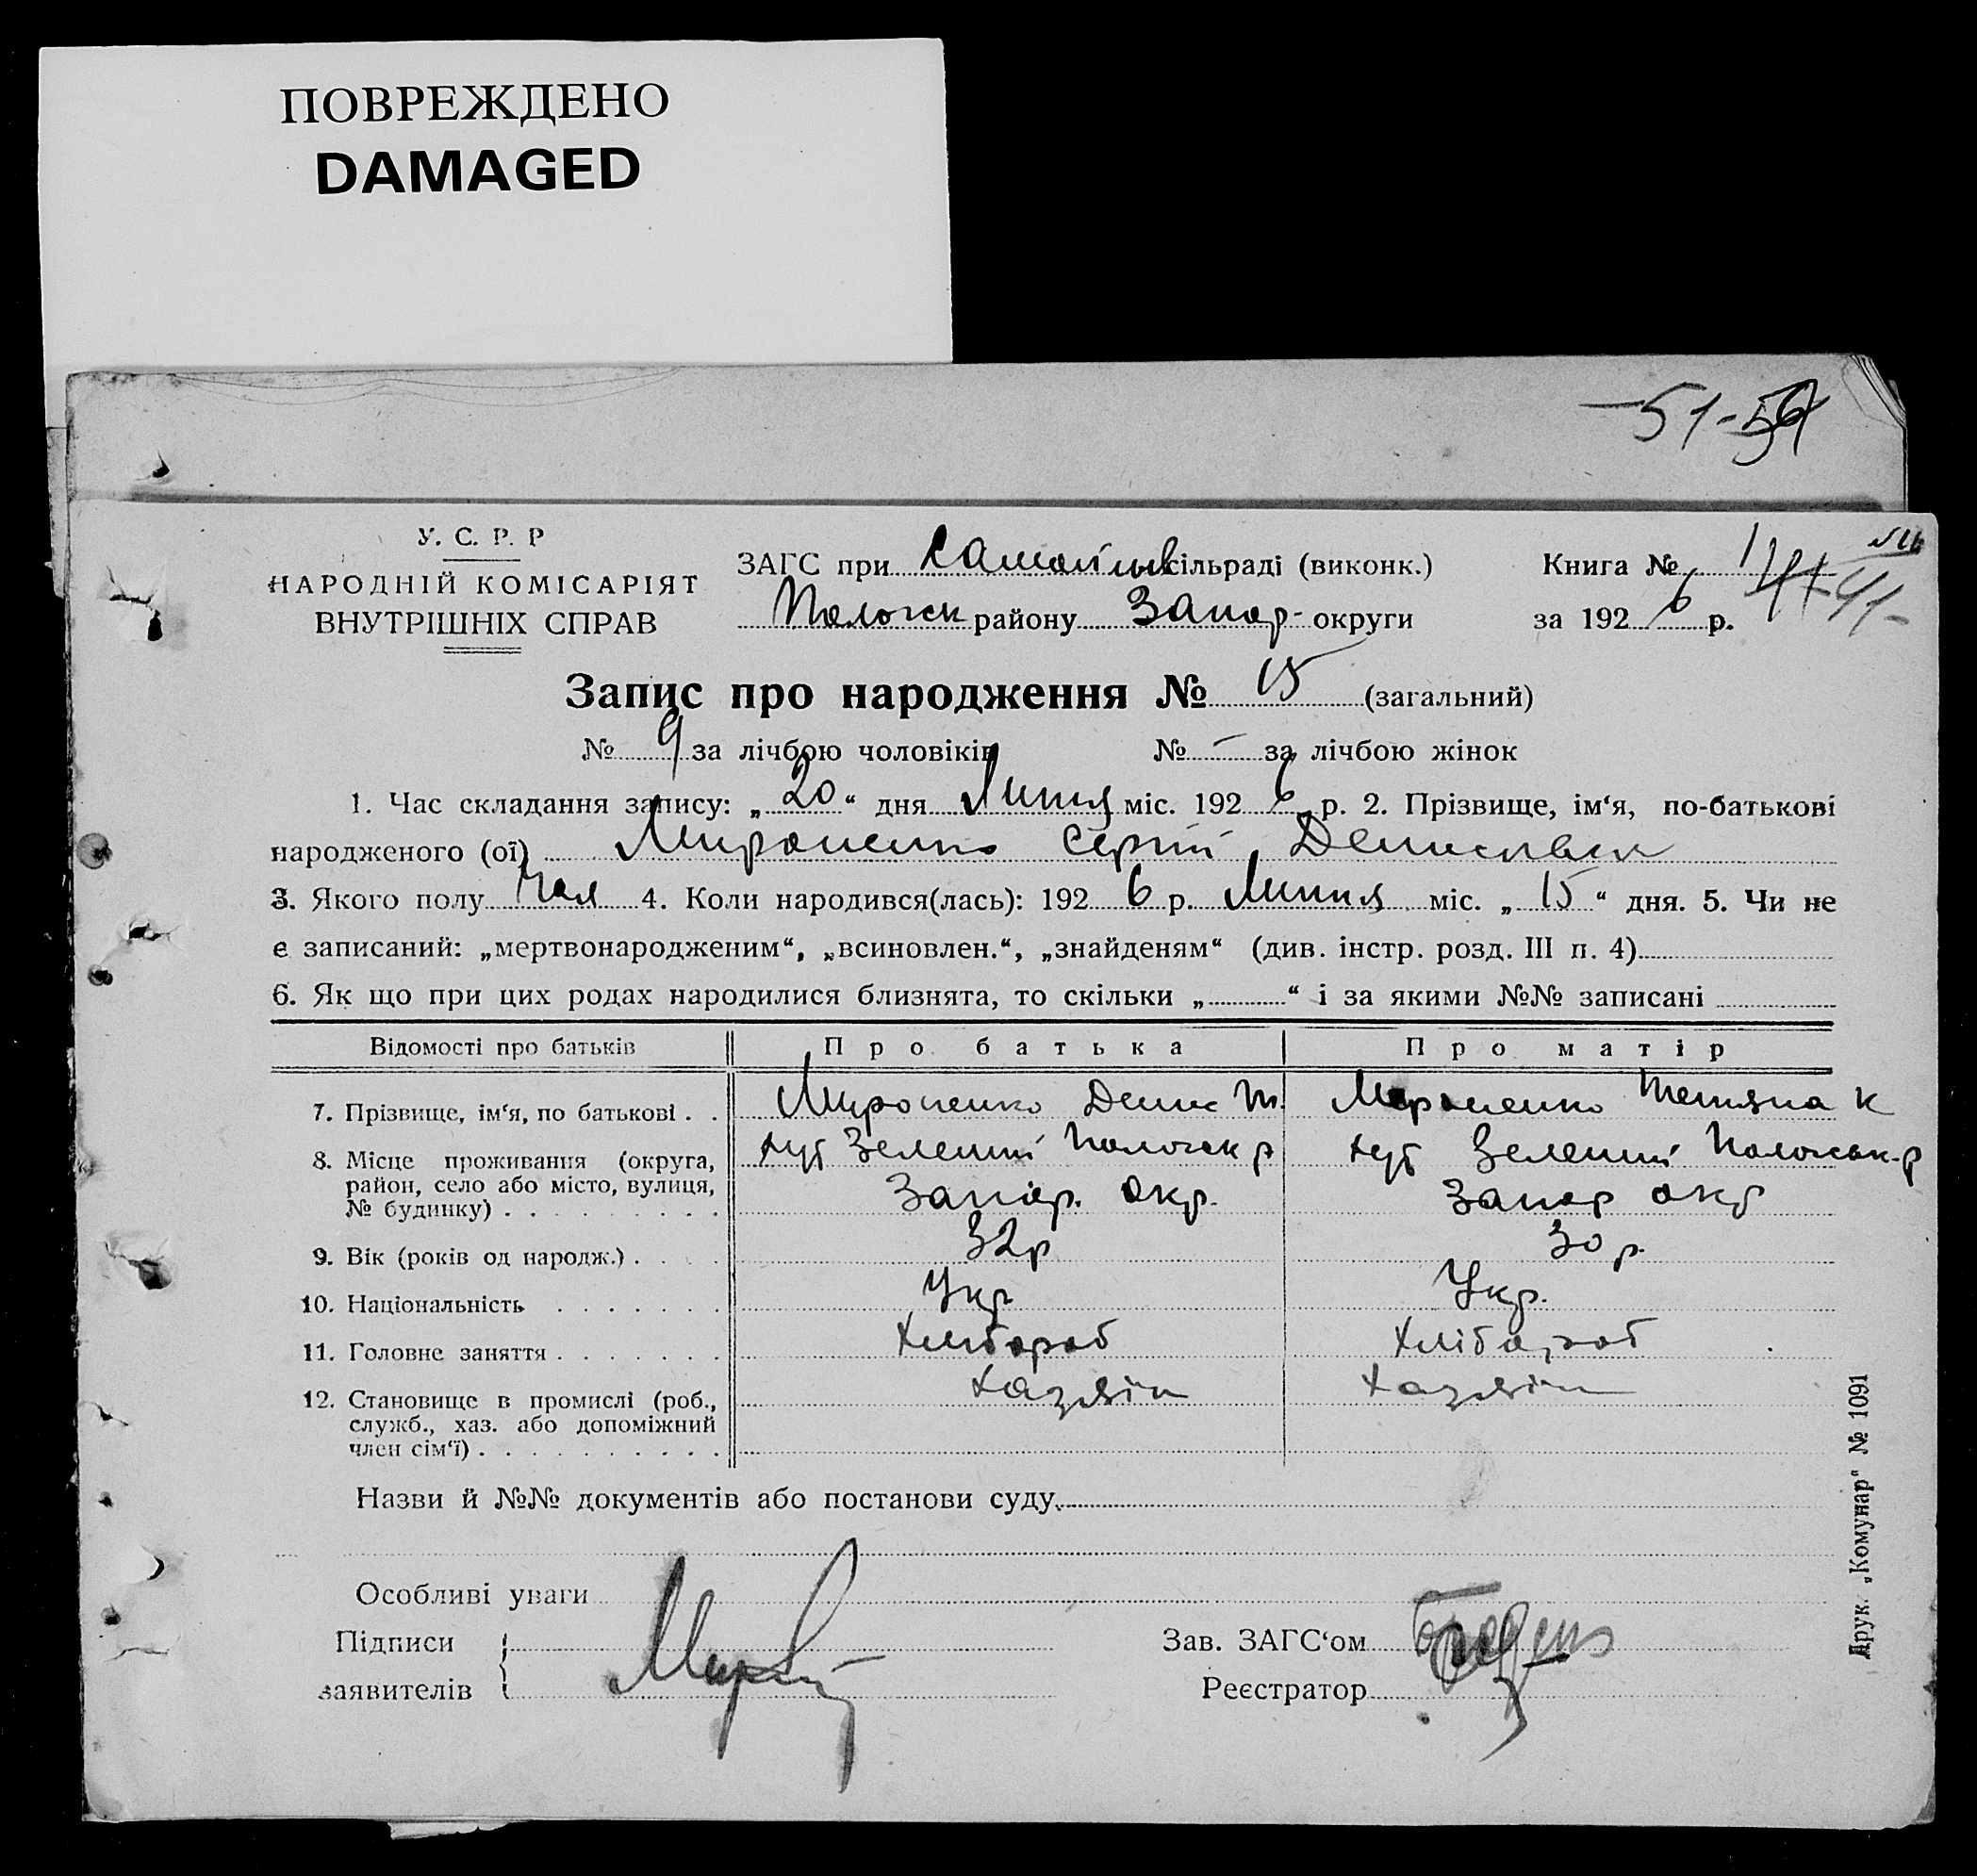 ПОВРЕЖДЕНО
DAMAGED
-51-
У. С. Р. Р
НАРОДНІЙ КОМІСАРІЯТ
ВНУТРІШНІХ СПРАВ
ЗАГС при сільраді (виконк.)
Пологск району Запор- округи
Книга № 1
за 1926 р. 41-
Запис про народження № 15 (загальний)
№ 9 за лічбою чоловіків № - за лічбою жінок
1. Час складання запису: „20“ дня Липня міс. 1926 р. 2. Прізвище, ім‘я, по-батькові
народженого (ої) Мироненко Сергій Денисович
3. Якого полу Чол 4. Коли народився(лась): 1926 р. Липня міс. „15“ дня. 5. Чи не
є записаний: „мертвонародженим“, „всиновлен.“, „знайденям“ (див. інстр. розд. III п. 4)
6. Як що при цих родах народилися близнята, то скільки „ “ і за якими №№ записані
Відомості про батьків Про батька Про матір
7. Прізвище, ім‘я, по батькові . . Мироненко Денис Т. Мироненко Тетяна К
8. Місце проживання (округа, район, село або місто, вулиця, № будинку) . . . . . . . . . хут Зелений Пологск р Запор. окр. хут Зелений Пологськ-р Запор окр
9. Вік (років од народж.) . . . . 32р 30 р.
10. Національність . . . . . . . Укр Укр.
11. Головне заняття . . . . . . . Хлібороб Хлібороб
12. Становище в промислі (роб., служб., хаз. або допоміжний член сім‘ї) . . . . . . . . . . Хазяін Хазяін
Назви й №№ документів або постанови суду
Особливі уваги
Підписи
заявителів
Зав. ЗАГС‘ом
Реєстратор
Друк. „Комунар“ № 1091